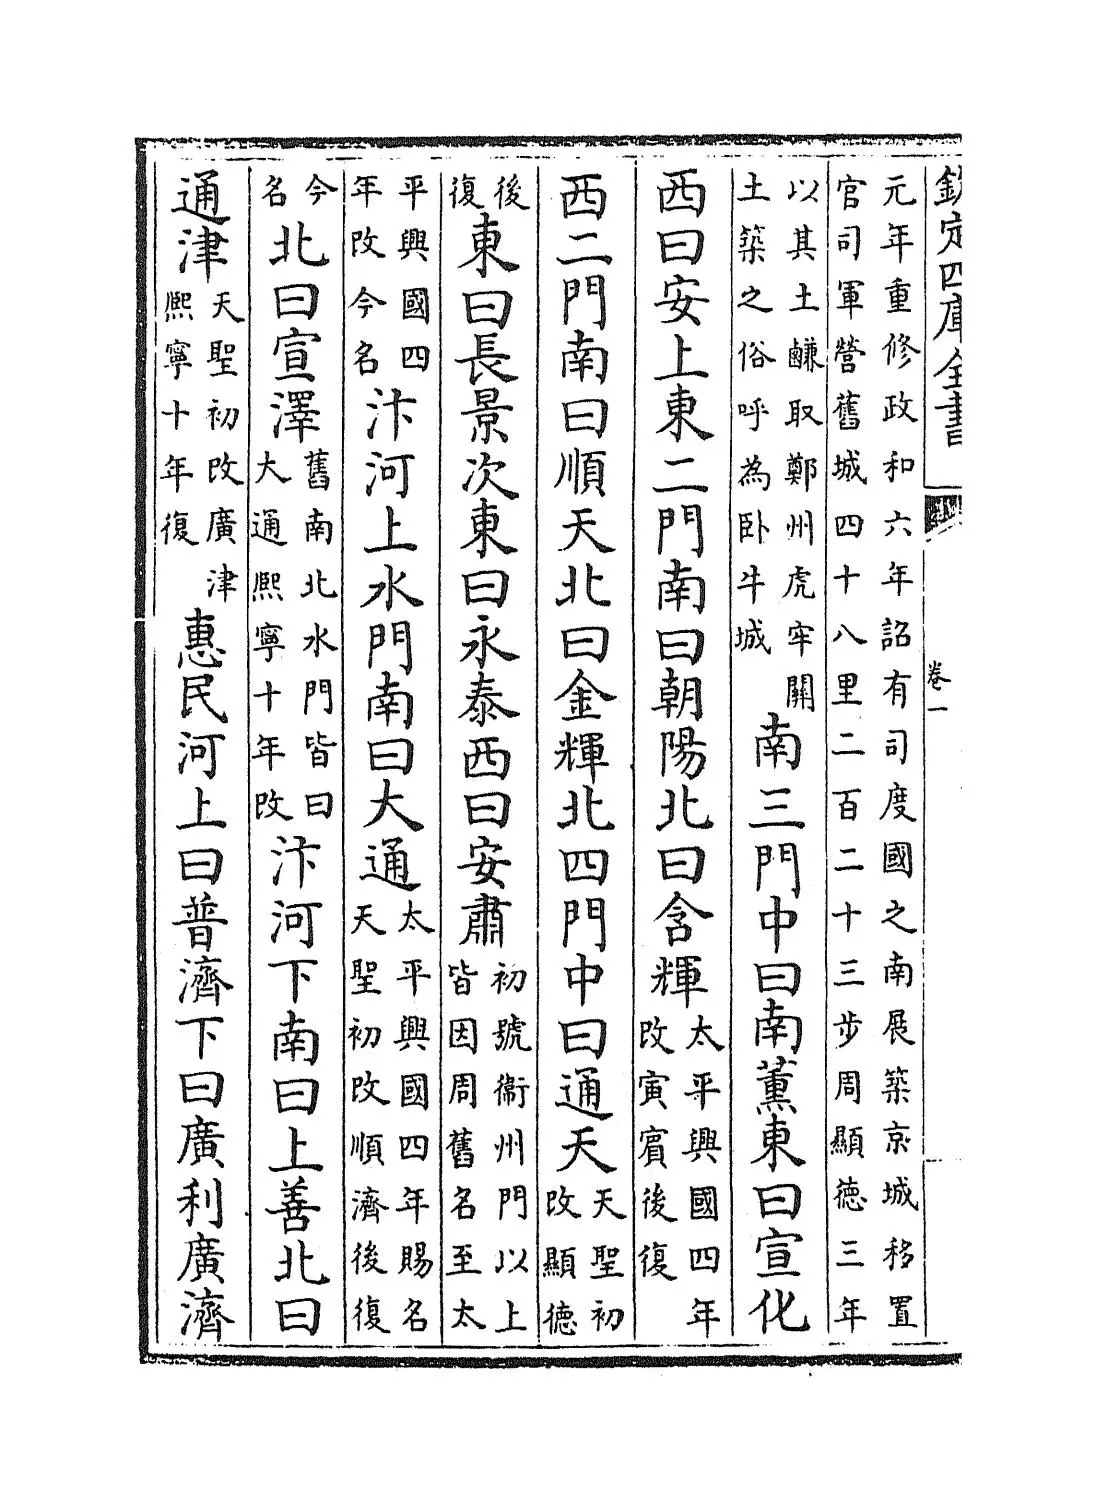 欽定四庫全書
卷一
元年重修政和六年詔有司度國之南展築京城移置
官司軍營舊城四十八里二百二十三步周顯德三年
以其土鹻取鄭州虎牢關土築之俗呼為卧牛城南三門中曰南薰東曰宣化
西曰安上東二門南曰朝陽北曰含輝太平興國四年改寅賓後復
西二門南曰順天北曰金輝北四門中曰通天天聖初改顯德
後復東曰長景次東曰永泰西曰安肅初號衞州門以上皆因周舊名至太
平興國四年改今名汴河上水門南曰大通太平興國四年賜名天聖初改順濟後復
今名北曰宣澤舊南北水門皆曰大通熙寧十年改汴河下南曰上善北曰
通津天聖初改廣津熙寧十年復惠民河上曰普濟下曰廣利廣濟